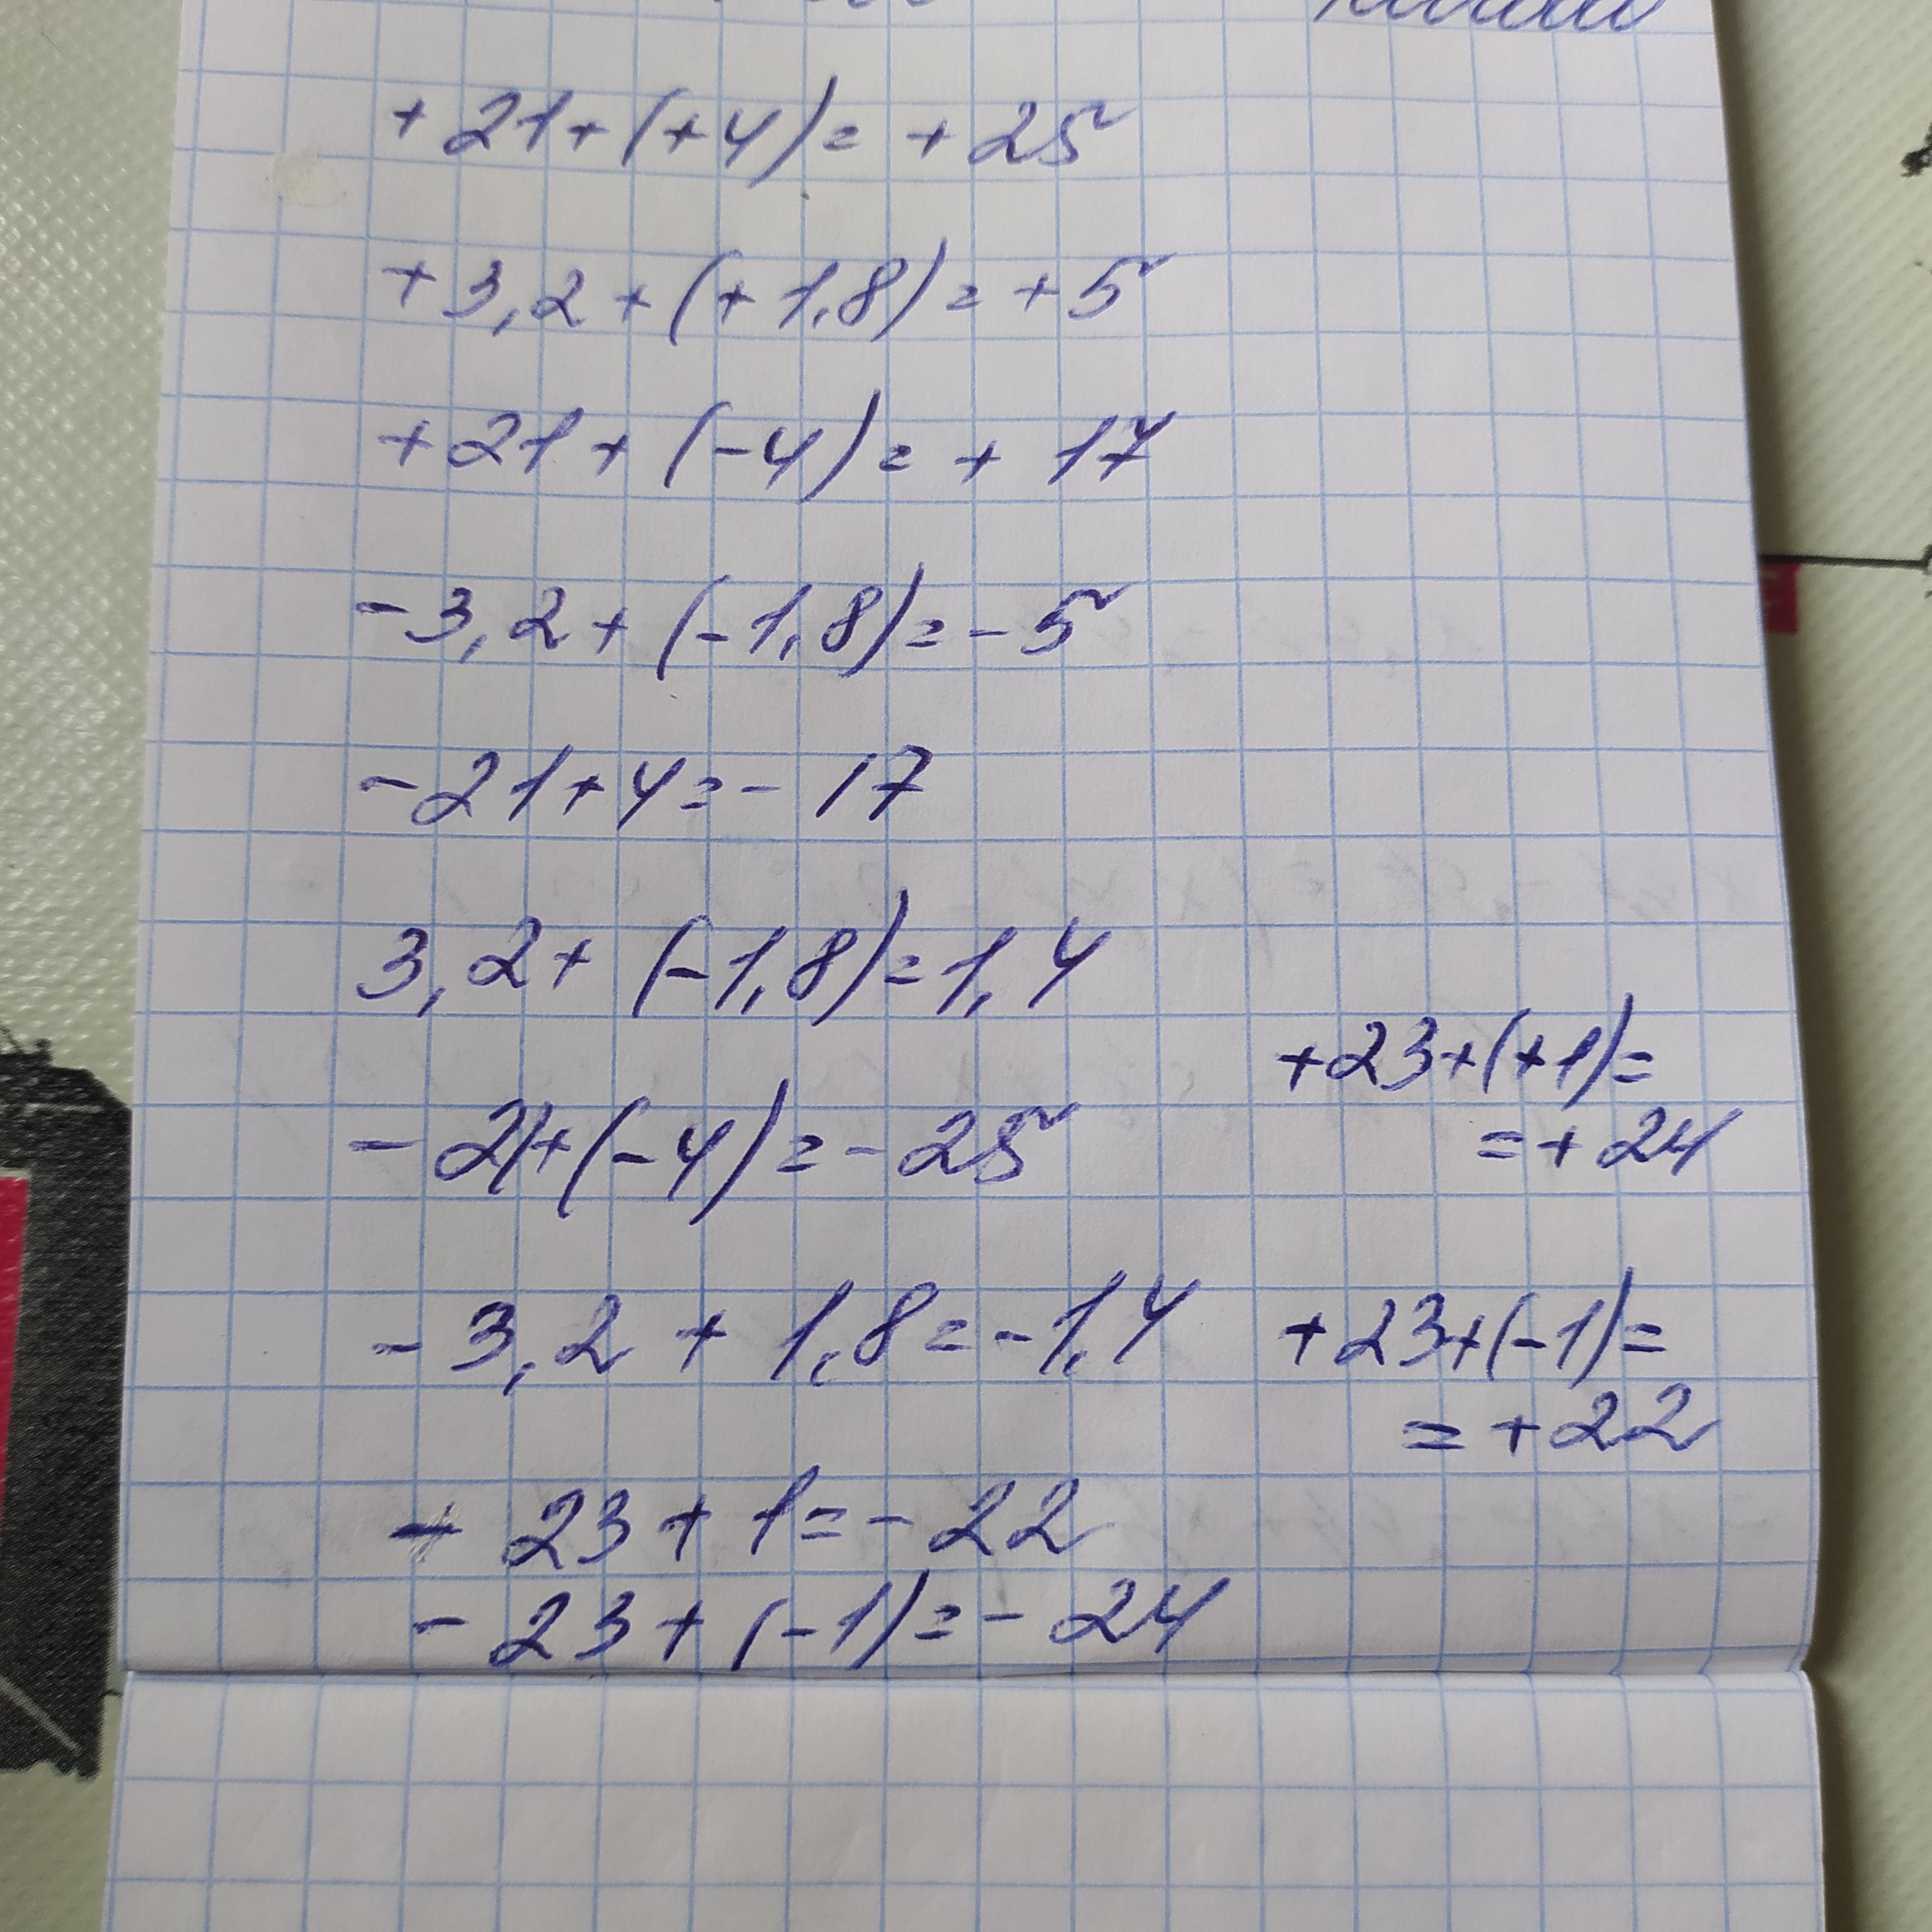 +21+(+4)=+25
+3,2+(+1,8)=+5
+21+(-4)=+17
-3,2+(-1,8)=-5
-21+4=-17
3,2+(-1,8)=1,4
-21+(-4)=-25
-3,2+1,8=-1,4
-23+1=-22
-23+(-1)=-24
+23+(+1)=
=+24
+23+(-1)=
=+22